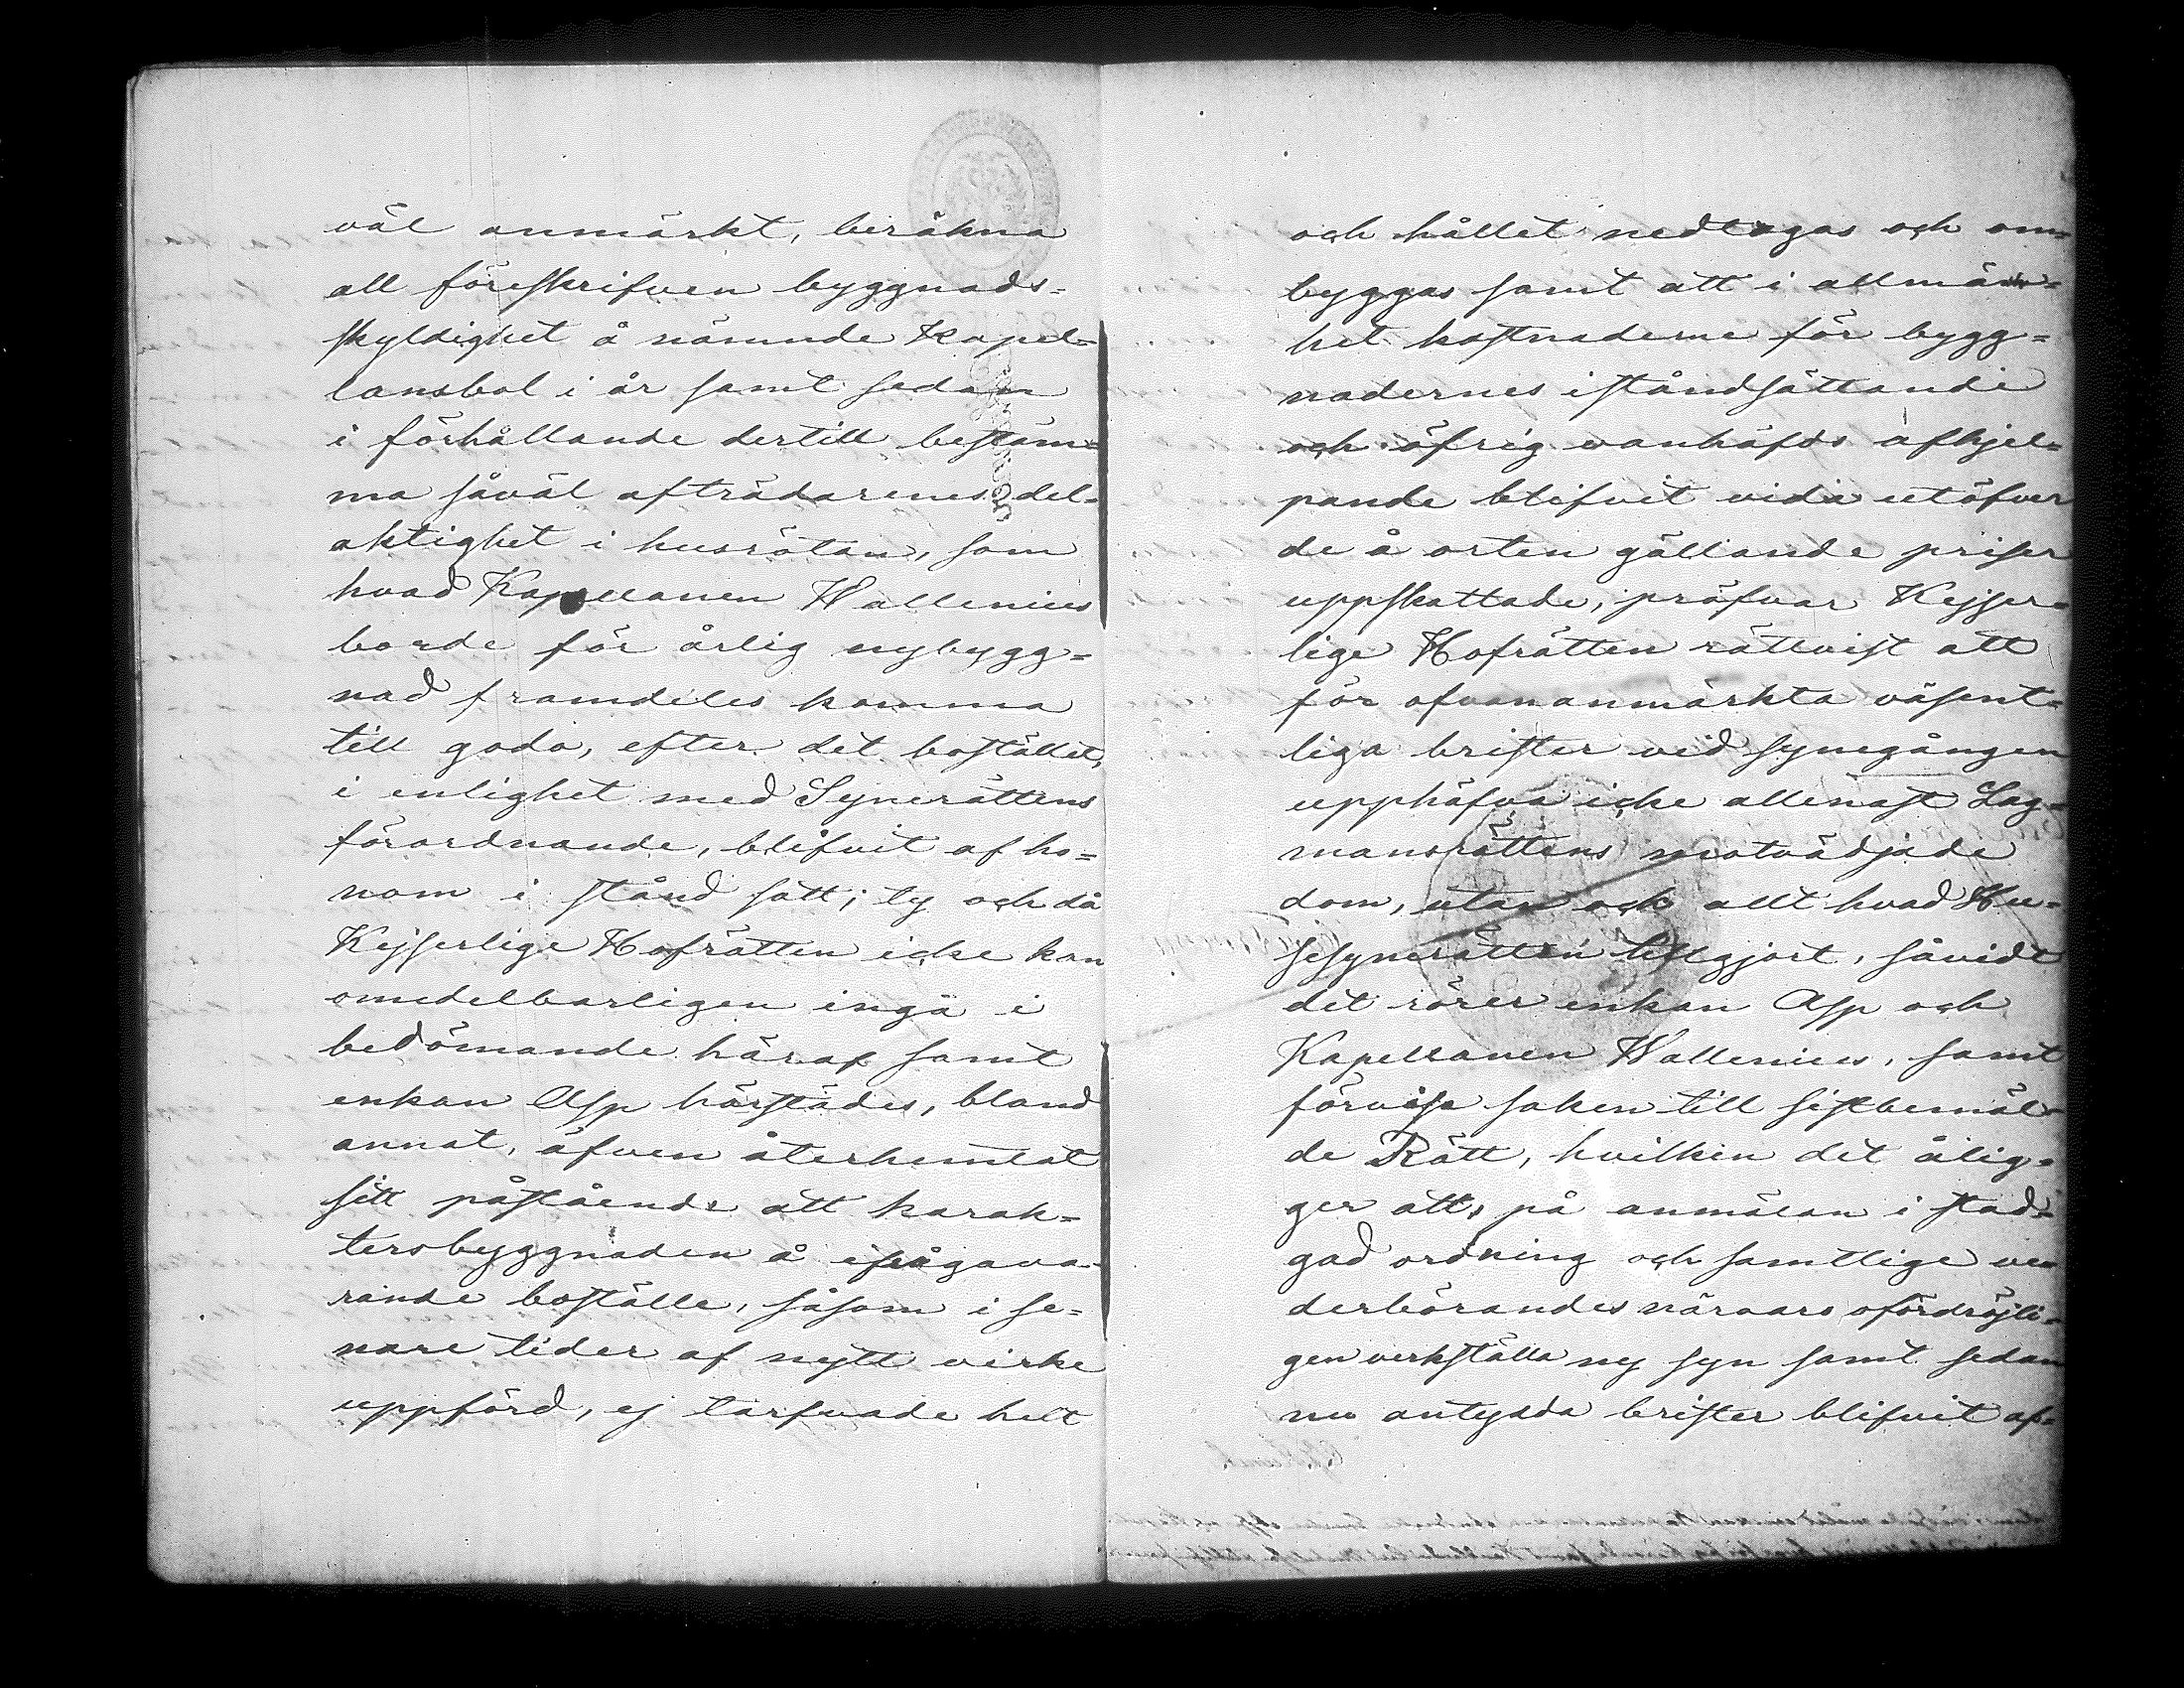 väl anmärkt, beräkna
all föreskrifven byggnads=
skyldighet å nämnde Kapel=
lansbol i år samt sedan
i förhållande dertill bestäm=
ma såväl afträdarenes del=
aktighet i husrötan, som
hvad Kapellanen Wallenius
borde för årlig nybygg=
nad framdeles komma
till godo, efter det bostället,
i enlighet med Synerättens
förordnande, blifvit af ho=
nom i stånd satt; ty och då
Kejserlige Hofrätten icke kan
omedelbarligen ingå i
bedömande häraf samt
enkan Asp härstädes, bland
annat, äfven återhemtat
sitt påstående att karak=
tersbyggnaden å ifrågava=
rande boställe, såsom i se=
nare tider af nytt virke
uppförd, ej tarfvade helt
och hållet nedtagas och om=
byggas samt att i allmän=
het kostnaderne för bygg=
nadernes iståndsättande
och öfrig vanhäfds afhjel=
pande blifvit vida utöfver
de å orten gällande priser
uppskattade, pröfvar Kejser=
lige Hofrätten rättvist att
för ofvananmärkta väsent=
liga brister vid synegången
upphäfva icke allenast Lag=
mansrättens motvädjade
dom, utan och allt hvad Hu=
sesynerätten tillgjort, såvidt
det rörer enkan Asp och
Kapellanen Wallenius, samt
förvisa saken till sistbemäl=
de Rätt, hvilken det ålig=
ger att, på anmälan i stad=
gad ordning och samtlige ve=
derbörandes närvaro ofördröjli=
gen verkställa ny syn samt sedan
nu antydda brister blifvit af=